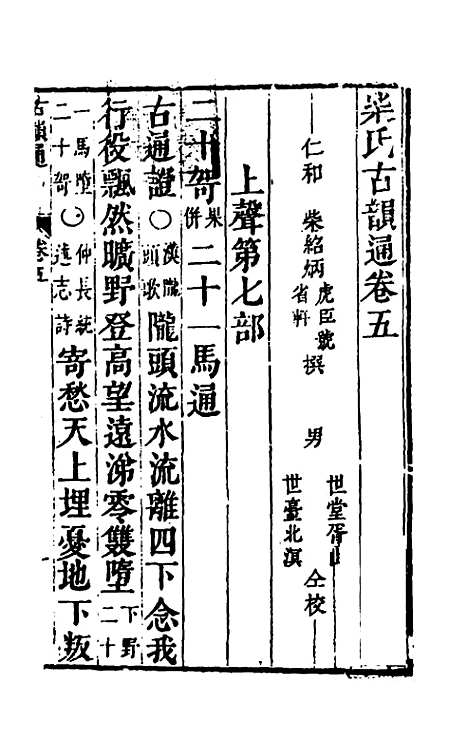 柴氏古韻通卷五
仁和 柴紹炳虎臣號省軒撰 男世堂胥山世臺北溟仝校
上聲第七部
二十哿果併二十一馬通
古通證〇漢隴頭歌隴頭流水流離四下念我
行役飄然曠野登高望遠涕零雙墮下野二十
一馬墮二十哿〇仲長統述志詩寄愁天上埋憂地下叛
古韻通 卷五